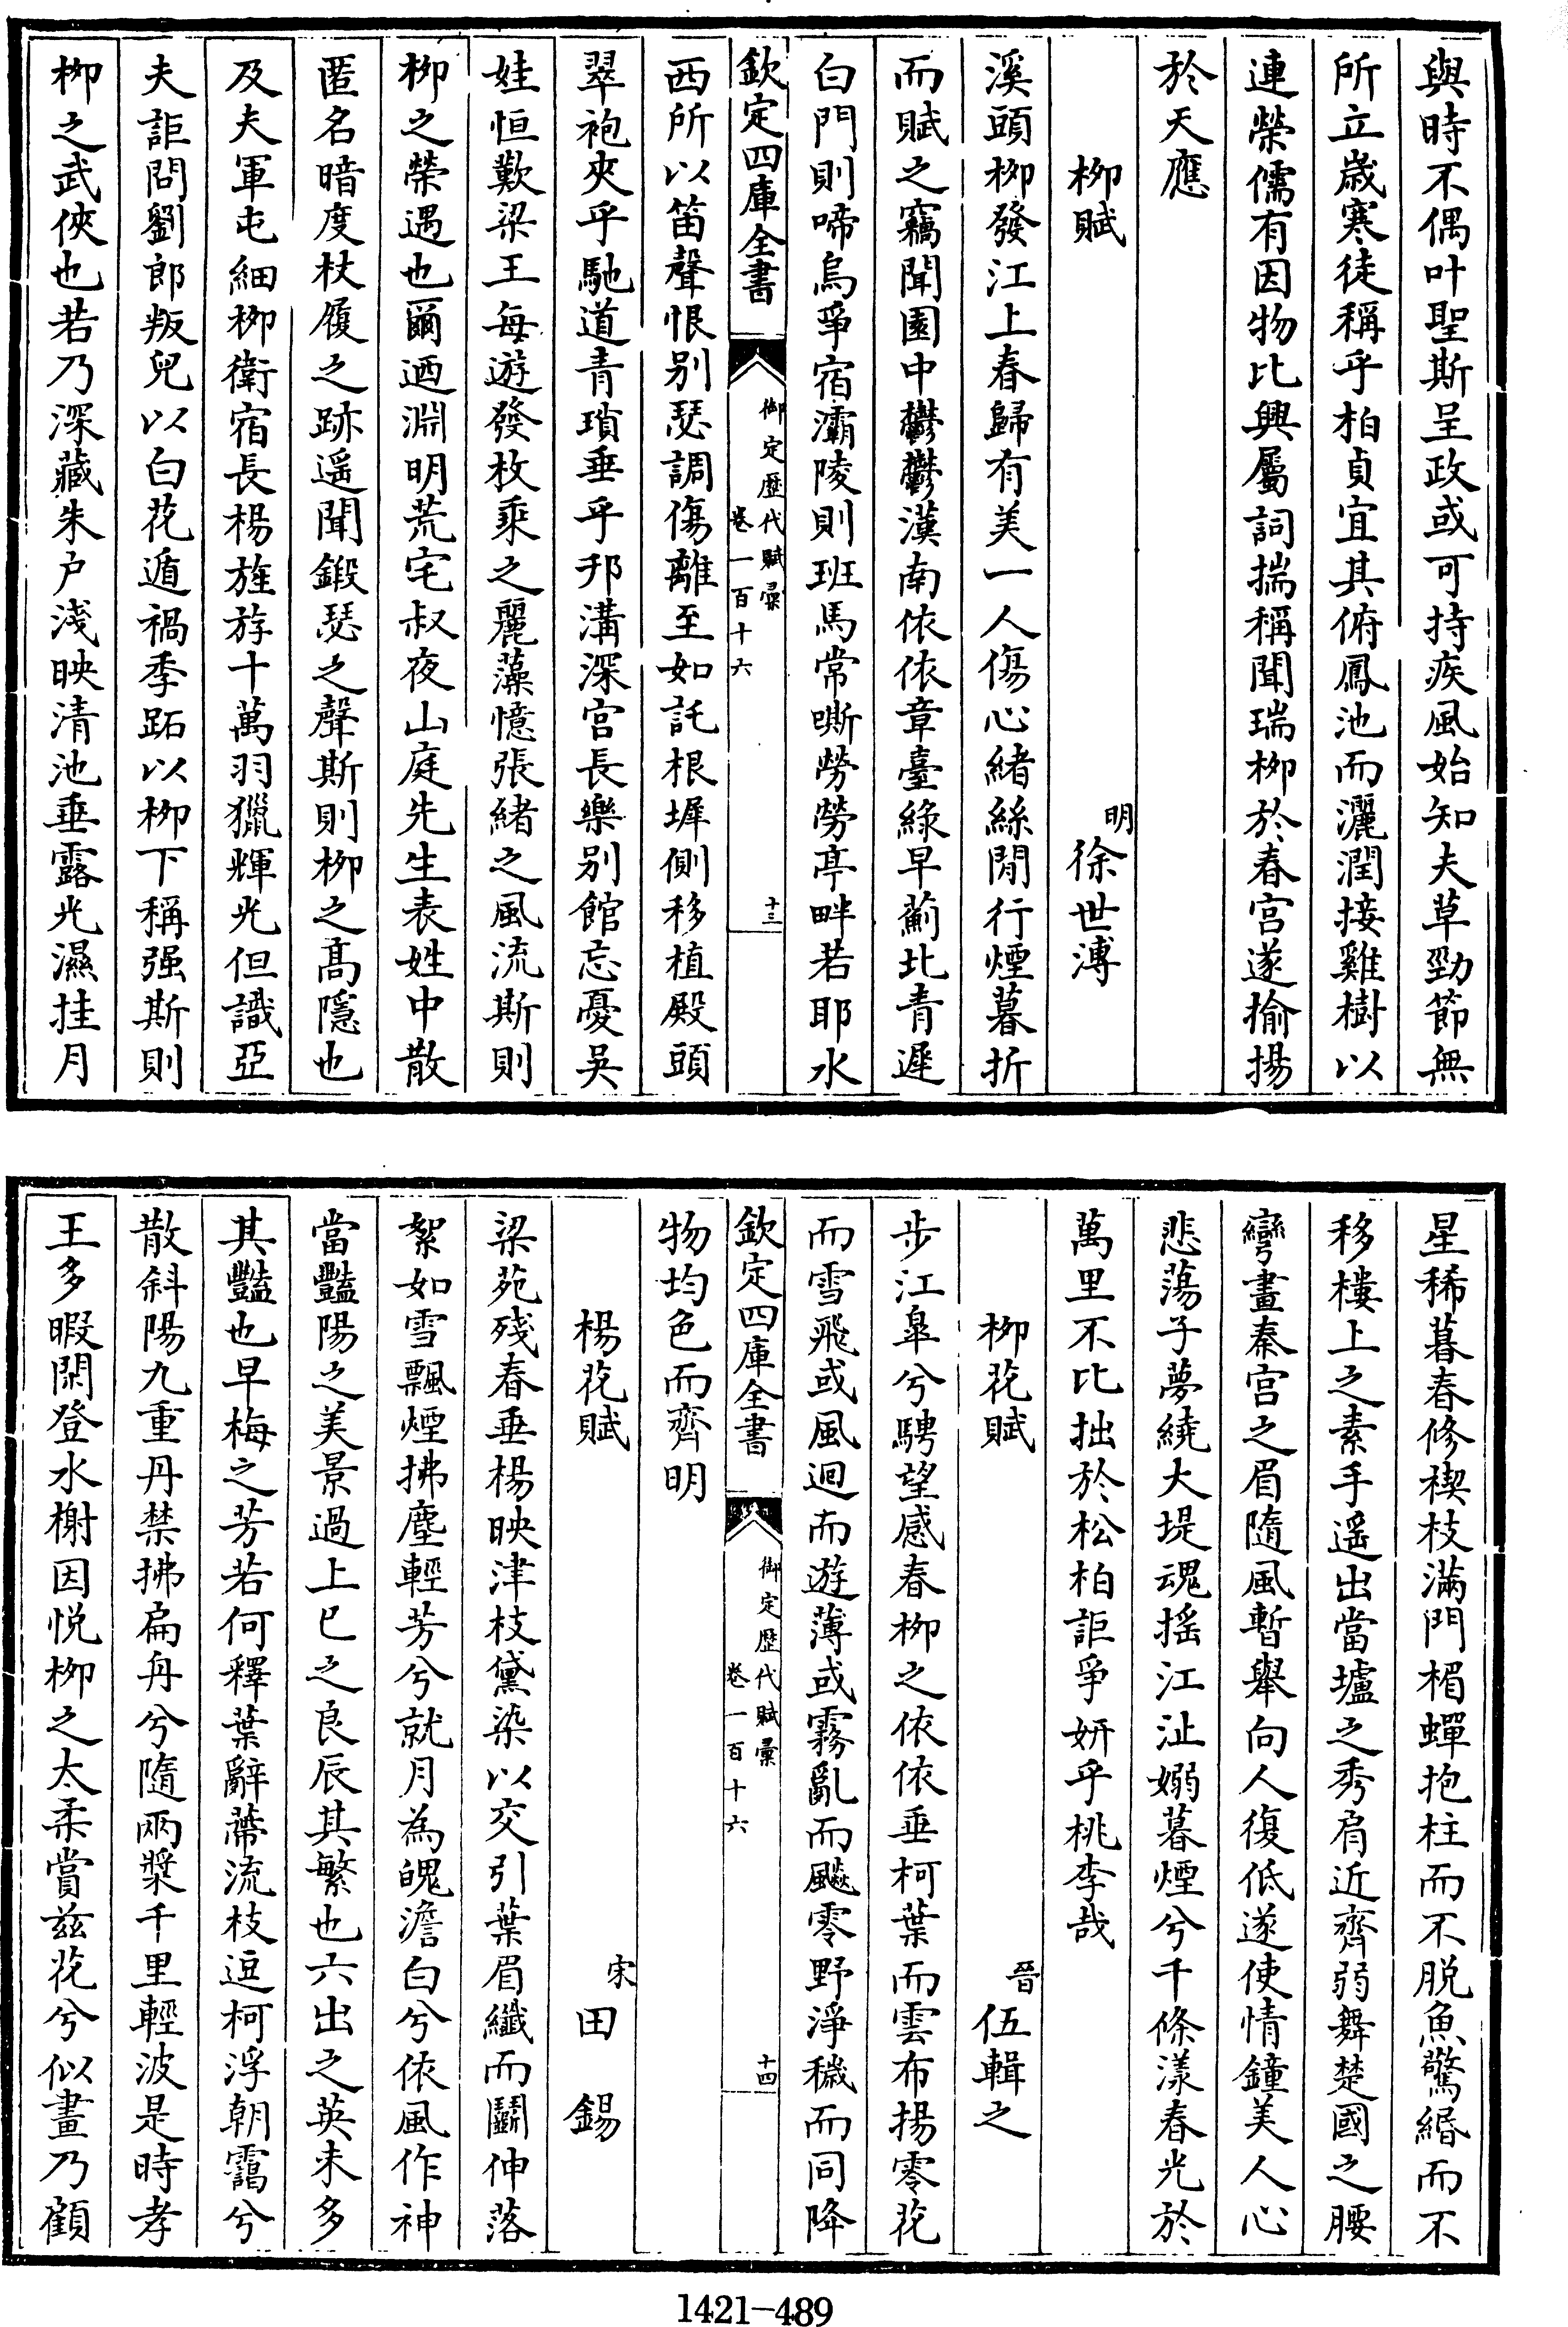 與時不偶叶聖斯呈政或可持疾風始知夫草勁節無
所立歲寒徒稱乎柏貞宜其俯鳳池而灑潤接雞樹以
連榮儒有因物比興屬詞揣稱聞瑞栁於春宫遂揄揚
於天應
栁賦
明徐世溥
溪頭栁發江上春歸有美一人傷心緒絲閒行煙暮折
而賦之竊聞園中鬱鬱漢南依依章臺綠早薊北青遲
白門則啼烏爭宿灞陵則班馬常嘶勞勞亭畔若耶水
欽定四庫全書
御定歷代賦彚
卷一百十六
十三
西所以笛聲恨别瑟調傷離至如託根墀側移植殿頭
翠袍夾乎馳道青瑣垂乎邗溝深宫長樂别館忘憂吳
娃恒歎梁王每遊發枚乘之麗藻憶張緒之風流斯則
栁之榮遇也爾迺淵明荒宅叔夜山庭先生表姓中散
匿名暗度杖履之跡遥聞鍛瑟之聲斯則栁之髙隱也
及夫軍屯細栁衛宿長楊旌斿十萬羽獵輝光但識亞
夫詎問劉郎叛兒以白花遁禍季跖以栁下稱强斯則
栁之武俠也若乃深藏朱户淺映清池垂露光濕挂月
星稀暮春修禊枝滿門楣蟬抱柱而不脱魚驚緡而不
移樓上之素手遥出當壚之秀肩近齊弱舞楚國之腰
彎畫秦宫之眉隨風暫舉向人復低遂使情鐘美人心
悲蕩子夢繞大堤魂揺江沚嫋暮煙兮千條漾春光於
萬里不比拙於松柏詎爭妍乎桃李哉
栁花賦
晉伍輯之
步江臯兮騁望感春栁之依依垂柯葉而雲布揚零花
而雪飛或風迴而遊薄或霧亂而飈零野淨穢而同降
欽定四庫全書
御定歷代賦彚
卷一百十六
十四
物均色而齊明
楊花賦
宋田錫
梁苑殘春垂楊映津枝黛染以交引葉眉纖而鬬伸落
絮如雪飄煙拂塵輕芳兮就月為魄澹白兮依風作神
當豔陽之美景過上巳之良辰其繁也六出之英未多
其豔也早梅之芳若何釋葉辭蔕流枝逗柯浮朝靄兮
散斜陽九重丹禁拂扁舟兮隨兩槳千里輕波是時孝
王多暇閑登水榭因悦栁之太柔賞兹花兮似畫乃顧
1421-489